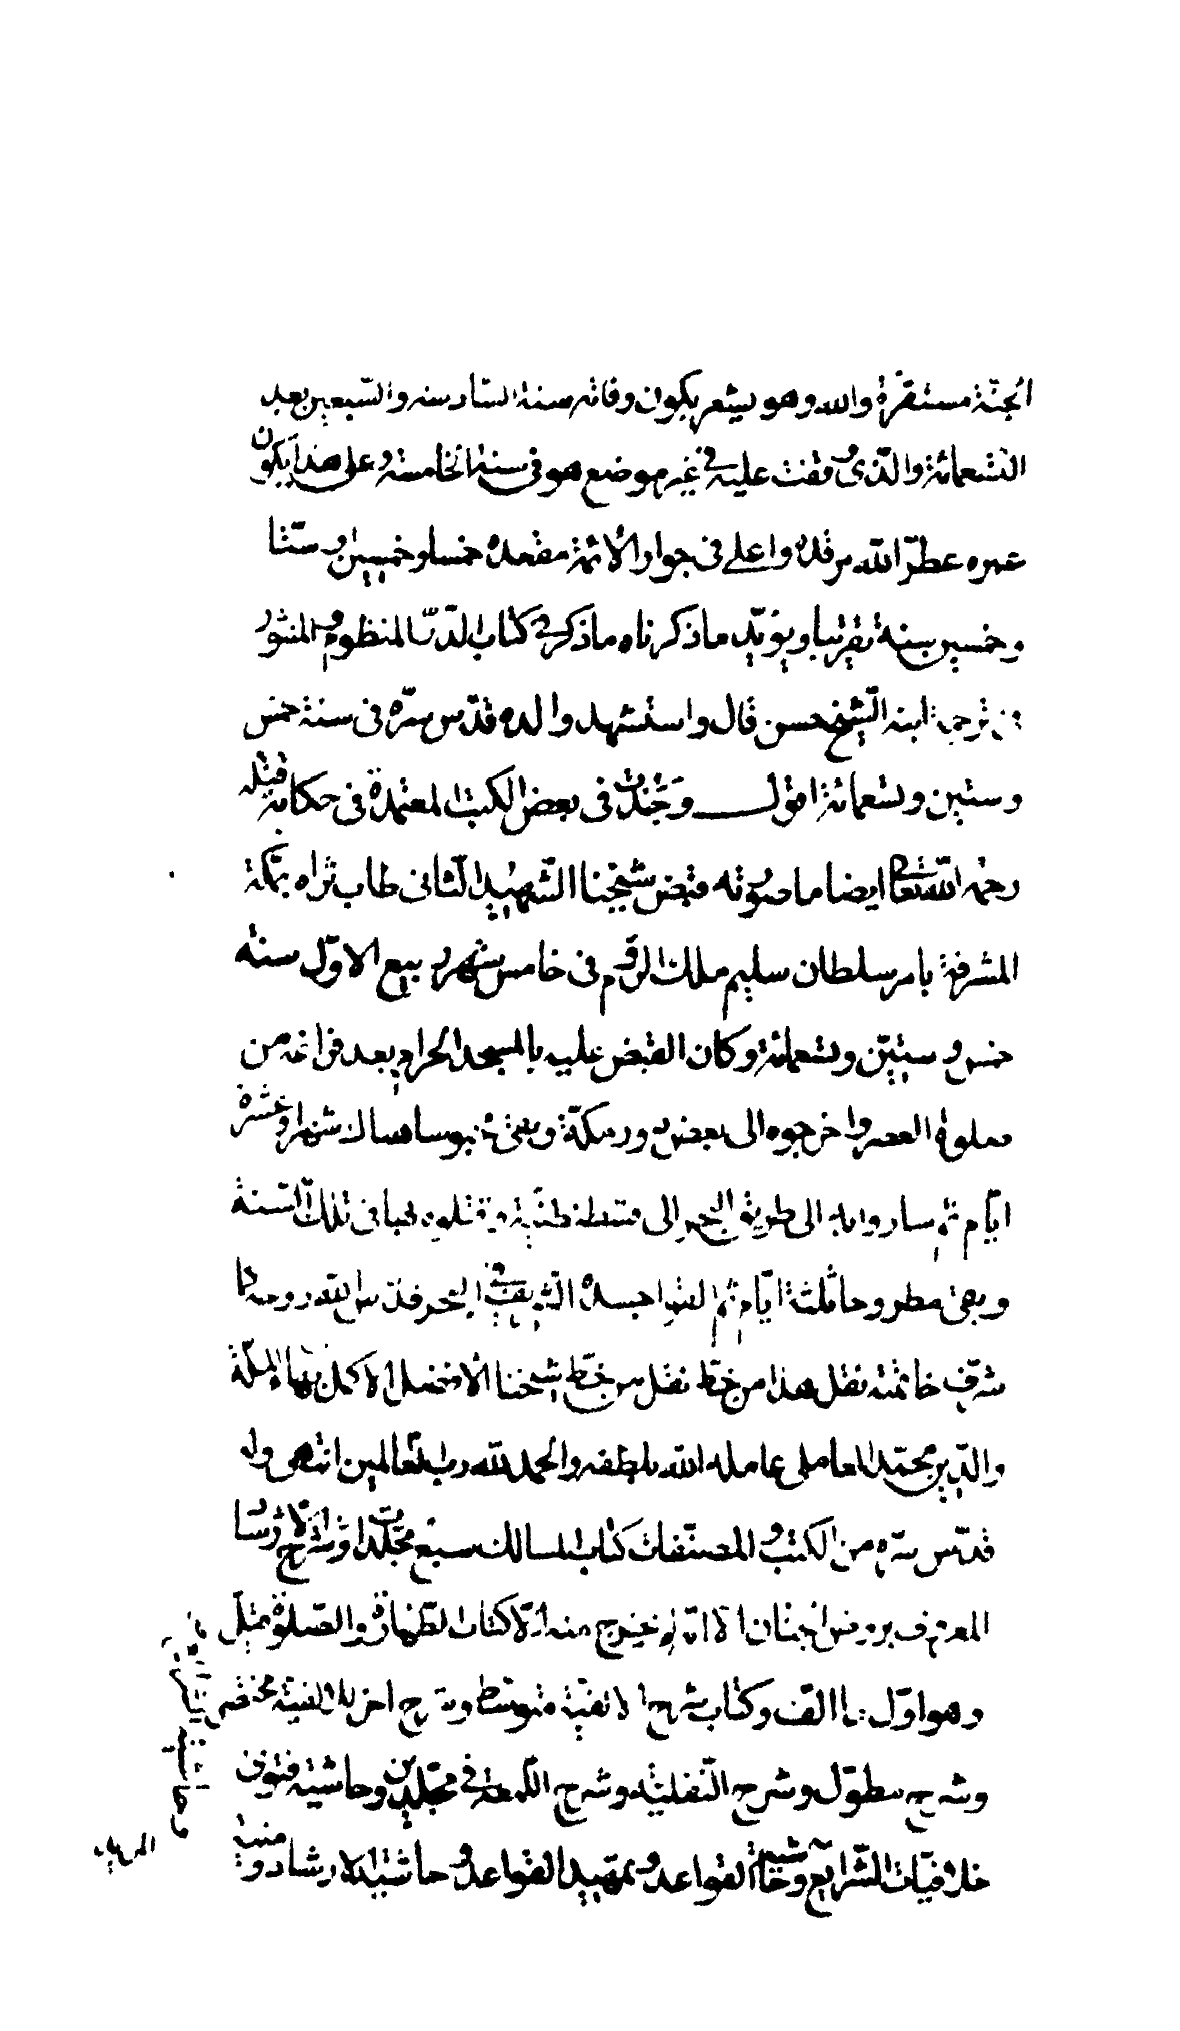 الجنّة مستقرّة والله وهو يشعر بكون وفاته سنة السّادسة والسّبعين بعد
التسعمائة والّذى وقفت عليه فى غير موضع هو فى سنة الخامسة وعلى هذا يكون
عمره عطّر الله مرقده واعلى فى جوار الائمّة مقعده خمسا وخمسين او ستّا
وخمسين سنة تقريبا ويؤيّد ما ذكرناه ما ذكره فى كتاب الدّر المنظوم والمنثور
فى ترجمة ابنه الشّيخ حسن قال واستشهد والده قدّس سرّه فى سنة خمس
وستين وتسعمائة اقول وجدت فى بعض الكتب المعتمدة فى حكاية قتله
رحمه الله تعالى ايضا ما صورته قبض شيخنا الشّهيد الثّانى طاب ثراه بمكّة
المشرفة بامر سلطان سليم ملك الرّوم فى خامس شهر ربيع الاوّل سنة
خمس وستّين وتسعمائة وكان القبض عليه بالمسجد الحرام بعد فراغه من
صلوة العصر واخرجوه الى بعض دور مكّة وبقى محبوسا هناك شهرا وعشرة
ايّام ثم ساروا به الى طريق البحر الى قسطنطنية وقتلوه بها فى تلك السّنة
وبقى مطروحا ثلثة ايّام ثم القوا جسده الشّريف فى البحر قدّس الله روحه كما
شرّف خاتمته نقل هذا من خطّ نقل من خطّ شيخنا الافضل الاكمل بهاء الملّة
والدّين محمّد العاملى عامله الله بلطفه والحمد لله ربّ العالمين انتهى وله
قدّس سرّه من الكتب والمصنّفات كتاب المسالك سبع مجلّدات وشرح الارشاد
المعروف بروض الجنان الا انّه لم يخرج منه الّا كتاب الطّهارة والصّلوة مجلّد
وهو اوّل ما الّف وكتاب شرح الالفية متوسّط وشرح اخر للالفية مختصر
وشرح مطوّل وشرح النّفلية وشرح اللّمعة فى مجلّدين وحاشية فتوى
خلافيّات الشّرايع وحاشية القواعد وتمهيد القواعد وحاشية الارشاد و